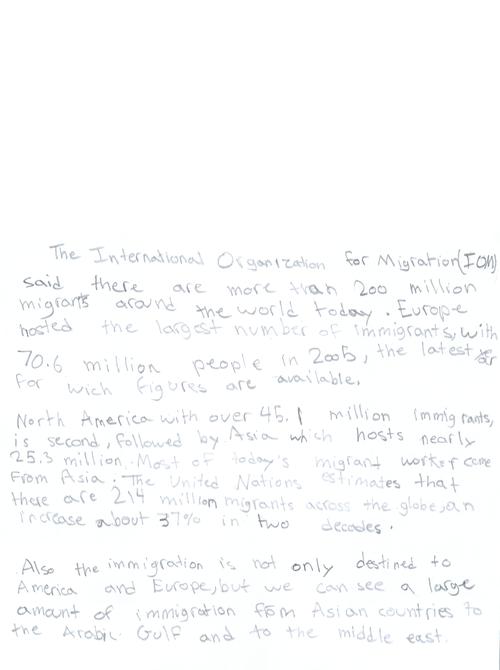 The International Organization for Migration (IOM)
said there are more than 200 million
migrants around the world today. Europe
hosted the largest number of immigrants, with
70.6 million people in 2005, the latest
for wich figures are available.
North America with over 45.1 million immigrants,
is second, followed by Asia which hosts nearly
25.3 million. Most of today's migrant worker come
From Asia. The United Nations estimates that
there are 214 million migrants across the globe, an
increase about 37% in two decades.
Also the immigration is not only destined to
America and Europe, but we can see a large
amount of immigration from Asian countries to
the Arabic Gulf and to the middle east.